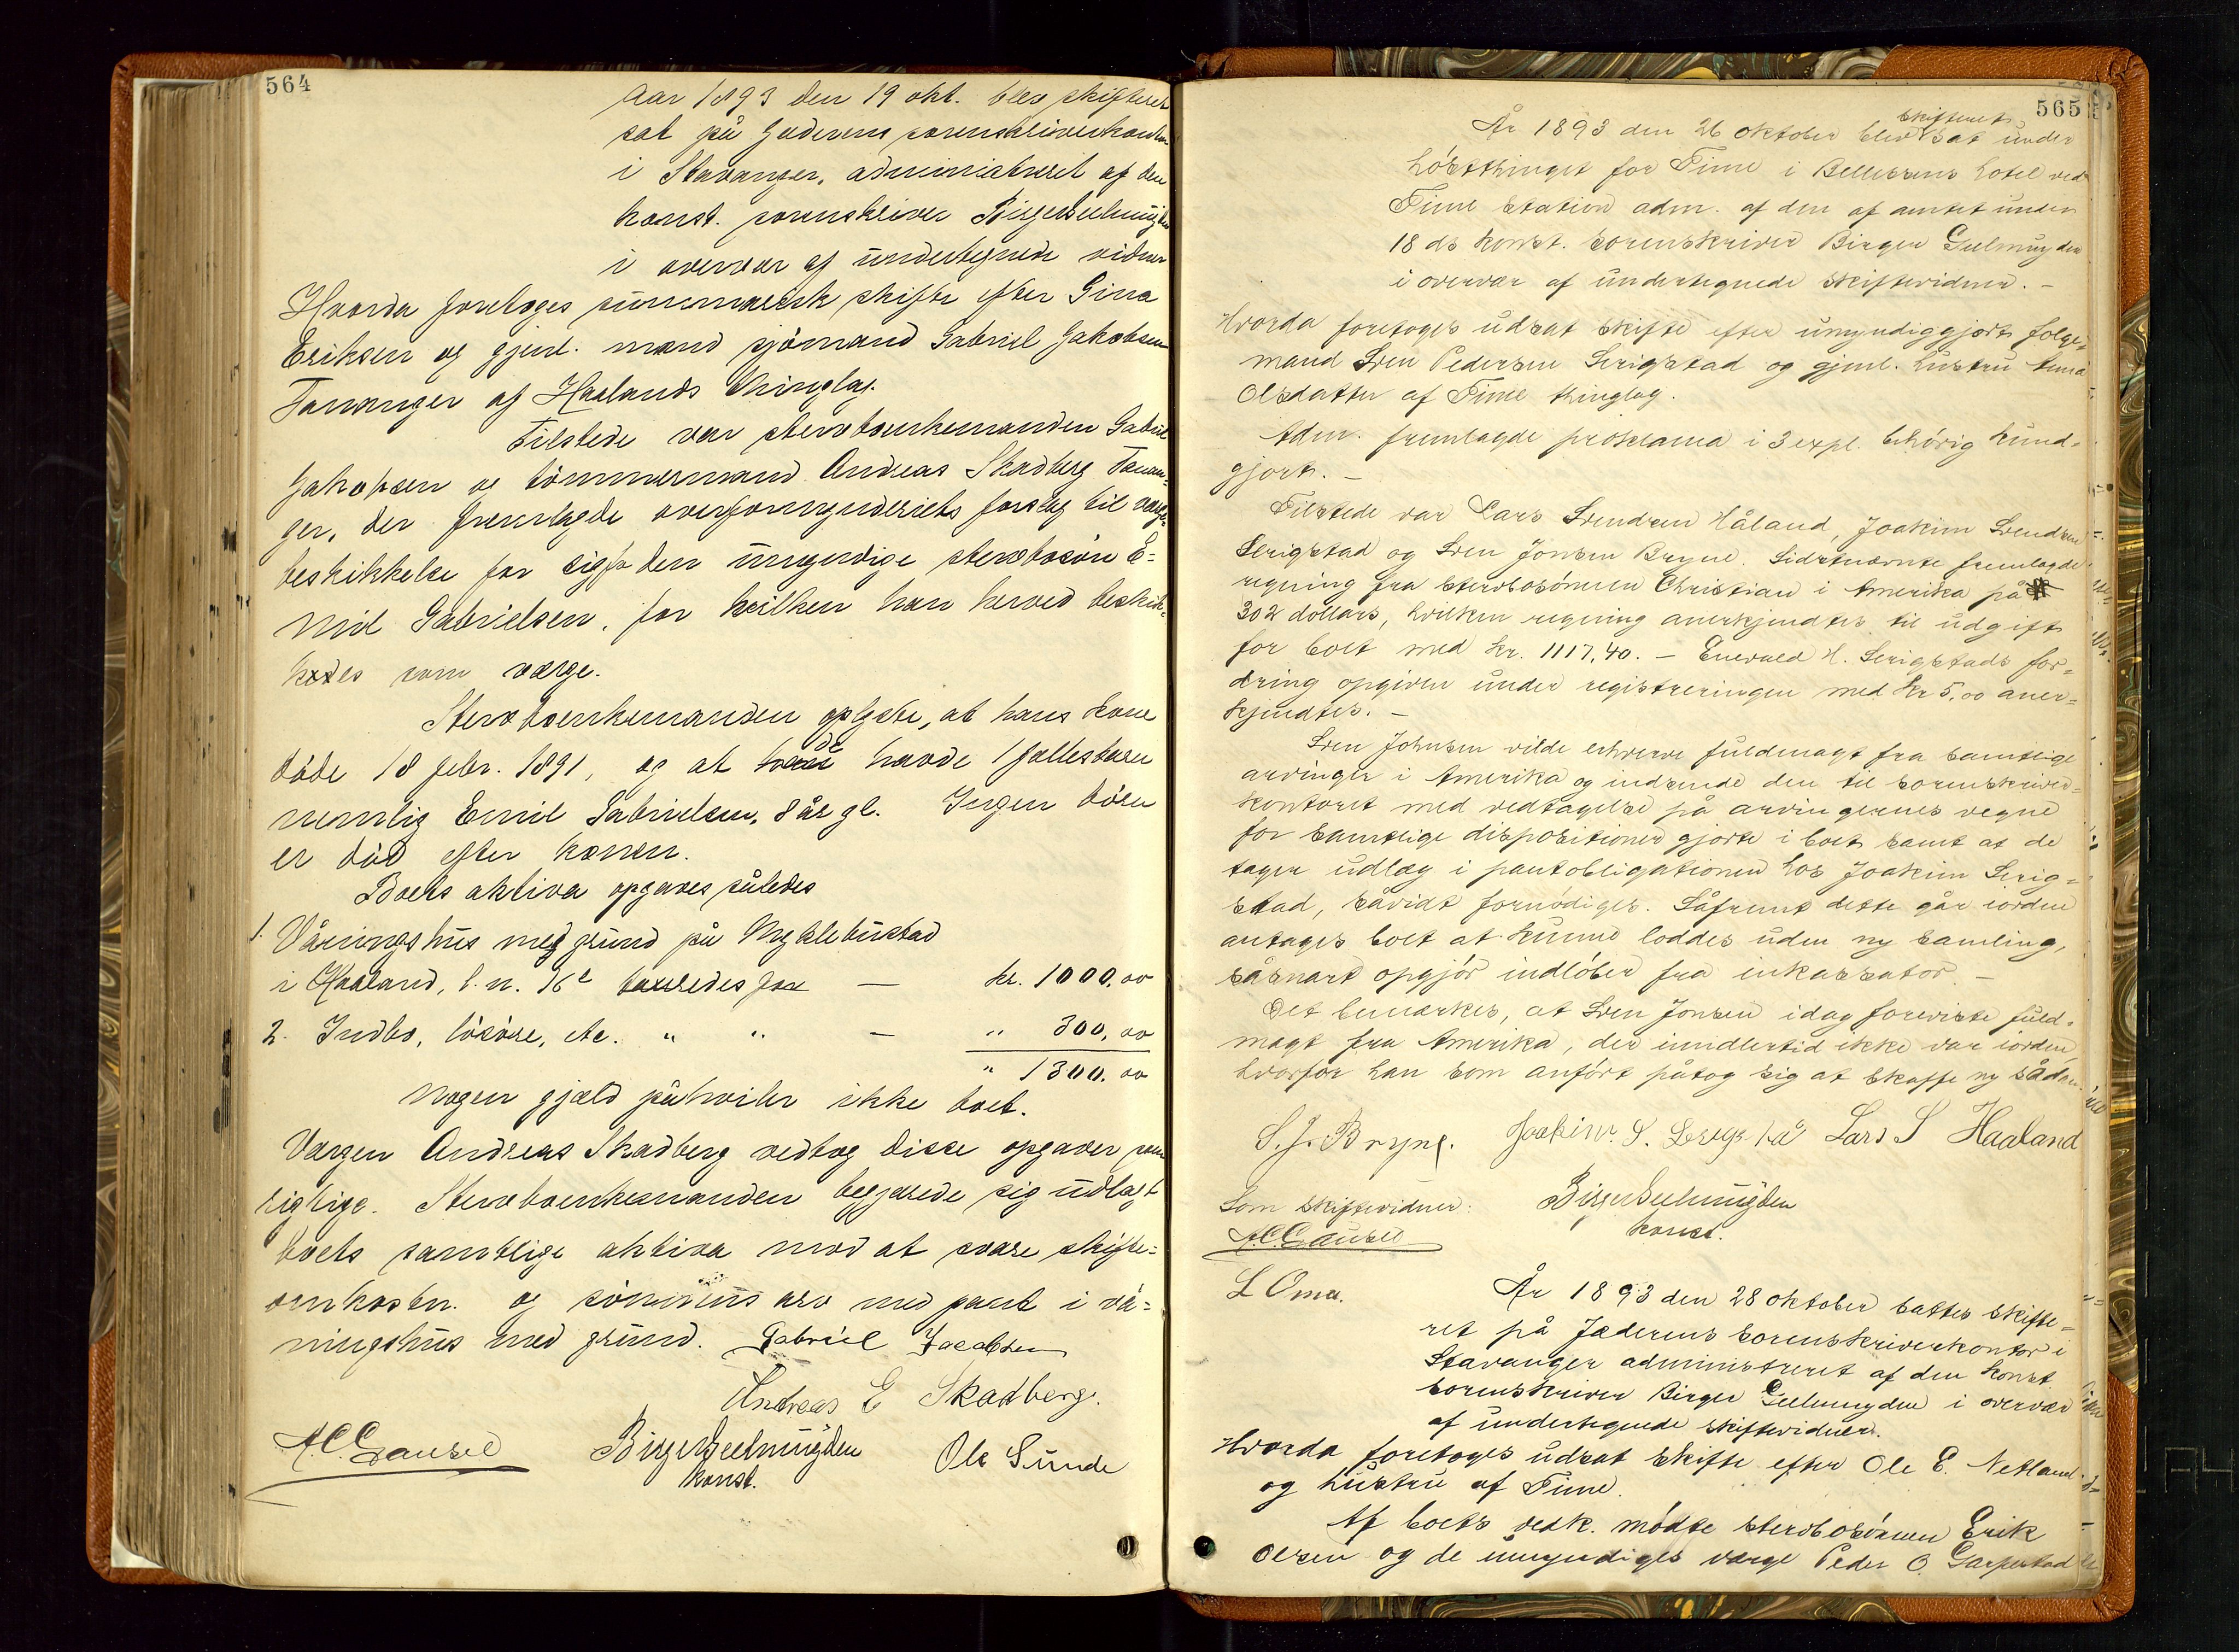 564
Aar 1893 den 19 okt. blev skifteret
sat på Jæderens sorenskriverkontor
i Stavanger, administreret af den
konst. sorenskriver Birger Geelmuyden
i overvær af undertegnede vidner
Hvorda foretoges summarisk skifte efter Gina
Eriksen og gjenl. mand sjömand Gabriel Jakobsen
Tananger af Haalands thinglag.
Tilstede var sterbœnkemanden Gabriel
Jakobsen og tömmermand Andreas Skadberg Tanan-
ger, der fremlagde overformynderiets forslag til værge-
beskikkelse for sig for den umyndige sterbosön E-
mil Gabrielsen, for hvilken han herved beskik-
kedes som værge.
Sterbœnkemanden oplyste, at hans kone
döde 18 febr. 1891, og at de havde 1 fællesbarn
nemlig Emil Gabrielsen, 8 år gl. Ingen börn
er död efter konen.
Boets aktiva opgaves således
1. Våningshus med grund på Myklebustad
i Haaland, l. n. 16 taxeredes for — kr. 1000,00
2. Indbo, lösöre, etc. " " — " 300,00
" 1300.00
Nogen gjæld påhviler ikke boet.
Værgen Andreas Skadberg vedtog disse opgaver som
rigtige. Sterbœnkemanden begjærede sig udlagt
boets samtlige aktiva mod at svare skifte-
omkostn. og sönnens arv med pant i vå-
ningshus med grund. Gabriel Jacobsen
Andreas E Skadberg.
A.C. Gausel Birger Geelmuyden Ole Sunde
konst.
565
skifteret
År 1893 den 26 oktober blev sat under
høstthinget for Time i Bellesens hotel ved
Time station adm. af den af amtet under
18 ds konst. sorenskriver Birger Geelmuyden
i overvær af undertegnede skiftevidner. –
Hvorda foretoges udsat skifte efter umyndiggjorte følge-
mand Sven Pedersen Serigstad og gjenl. hustru
Olsdatter af Time thinglag.
Adm. fremlagde proklama i 3 expl. behørig kund-
gjort. –
Tilstede var Lars Svendsen Håland, Joakim Svendsen
Serigstad og Sven Jonsen Bryne. Sidstnævnte fremlagde
regning fra sterbosønnen Christian i Amerika på
302 dollars, hvilken regning anerkjendtes til udgift
for boet med kr. 1117,40. – Enevald H. Serigstads for-
dring opgiven under registreringen med kr 5,00 aner-
kjendtes. –
Sven Johnsen vilde erhverve fuldmagt fra samtlige
arvinger i Amerika og indsende den til sorenskriver-
kontoret med vedtagelse på arvingernes vegne
for samtlige dispositioner gjorte i boet samt at de
tager udlæg i pantobligationen hos Joakim Serig-
stad, såvidt fornødiges. Såfremt dette går iorden
antages boet at kunne loddes uden ny samling,
såsnart opgjör indløber fra inkassator. –
Det bemærkes, at Sven Jonsen idag foreviste fuld-
magt fra Amerika, der imidlertid ikke var iorden,
hvorfor han som anført påtog sig at skaffe ny sådan
S. J. Bryne. Joakim S. Serigstad Lars S Haaland
Som skiftevidner: Birger Geelmuyden
A.C. Gausel konst.
L Oma.
År 1893 den 28 oktober sattes skifte-
ret på Jæderens sorenskriverkontor i
Stavanger administreret af den konst.
sorenskriver Birger Geelmuyden i overvær
af undertegnede skiftevidner.
Hvorda foretoges udsat skifte efter Ole E. Netland
og hustru af Time.
Af boets vedk. mødte sterbosønnen Erik
Olsen og de umyndiges værge Peder O. Garpestad